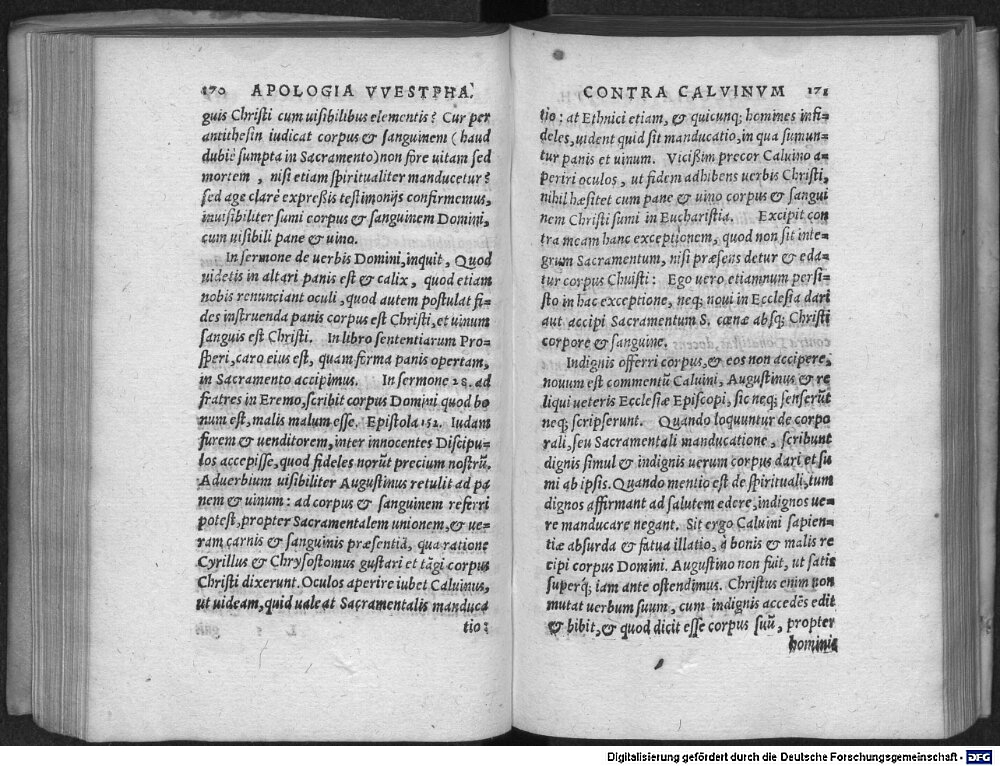 170 APOLOGIA VVESTPHA.
guis Christi cum uisibilibus elementis? Cur per
antithesin iudicat corpus & sanguinem (haud
dubiè sumpta in Sacramento) non fore uitam sed
mortem, nisi etiam spiritualiter manducetur?
sed age clarè expreßis testimonijs confirmemus,
inuisibiliter sumi corpus & sanguinem Domini,
cum uisibili pane & uino.
In sermone de uerbis Domini, inquit, Quod
uidetis in altari panis est & calix, quod etiam
nobis renunciant oculi, quod autem postulat fi=
des instruenda panis corpus est Christi, et uinum
sanguis est Christi. In libro sententiarum Pro=
speri, caro eius est, quam forma panis opertam,
in Sacramento accipimus. In sermone 28. ad
fratres in Eremo, scribit corpus Domini quod bo
num est, malis malum esse. Epistola 152. Iudam
furem & uenditorem, inter innocentes Discipu=
los accepisse, quod fideles norūt precium nostrū.
Aduerbium uisibiliter Augustinus retulit ad pa
nem & uinum: ad corpus & sanguinem referri
potest, propter Sacramentalem unionem, & ue=
ram carnis & sanguinis præsentiā, qua ratione
Cyrillus & Chrysostomus gustari et tāgi corpus
Christi dixerunt. Oculos aperire iubet Caluinus,
ut uideam, quid ualeat Sacramentalis manduca
tio:
CONTRA CALVINVM 171
tio: at Ethnici etiam, & quicunq; homines infi=
deles, uident quid sit manducatio, in qua sumun=
tur panis et uinum. Vicißim precor Caluino a=
periri oculos, ut fidem adhibens uerbis Christi,
nihil hæsitet cum pane & uino corpus & sangui
nem Christi sumi in Eucharistia. Excipit con
tra meam hanc exceptionem, quod non sit inte=
grum Sacramentum, nisi præsens detur & eda=
tur corpus Chuisti: Ego uero etiamnum persi=
sto in hac exceptione, neq; noui in Ecclesia dari
aut accipi Sacramentum S. cœnæ absq; Christi
corpore & sanguine.
Indignis offerri corpus, & eos non accipere,
nouum est commentū Caluini, Augustinus & re
liqui ueteris Ecclesiæ Episcopi, sic neq; senserūt
neq; scripserunt. Quando loquuntur de corpo
rali, seu Sacramentali manducatione, scribunt
dignis simul & indignis uerum corpus dari et su
mi ab ipsis. Quando mentio est de spirituali, tum
dignos affirmant ad salutem edere, indignos ue=
re manducare negant. Sit ergo Caluini sapien=
tiæ absurda & fatua illatio, à bonis & malis re
cipi corpus Domini. Augustino non fuit, ut satis
superq; iam ante ostendimus. Christus enim non
mutat uerbum suum, cum indignis accedēs edit
& bibit, & quod dicit esse corpus suū, propter
hominis
Digitalisierung gefördert durch die Deutsche Forschungsgemeinschaft - DFG